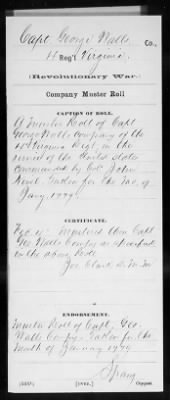 Capt. George Walls Co.,
4 Reg't Virginia.
(Revolutionary War.)
Company Muster Roll
CAPTION OF ROLL.
A Muster Roll of Capt
George Walls Company of the
Virginia Regt. in the
service of the United States
commanded by Col. John
Nevil. Taken for the Mo. of
Jany. 1779.
CERTIFICATE.
Mustered then Capt
Geo Walls Compy as specified
in the above Roll
Clark D. M. M.
ENDORSEMENT.
Muster Roll of Capt. Geo.
Walls Compy. Taken for the
month of January 1779
Copyist.